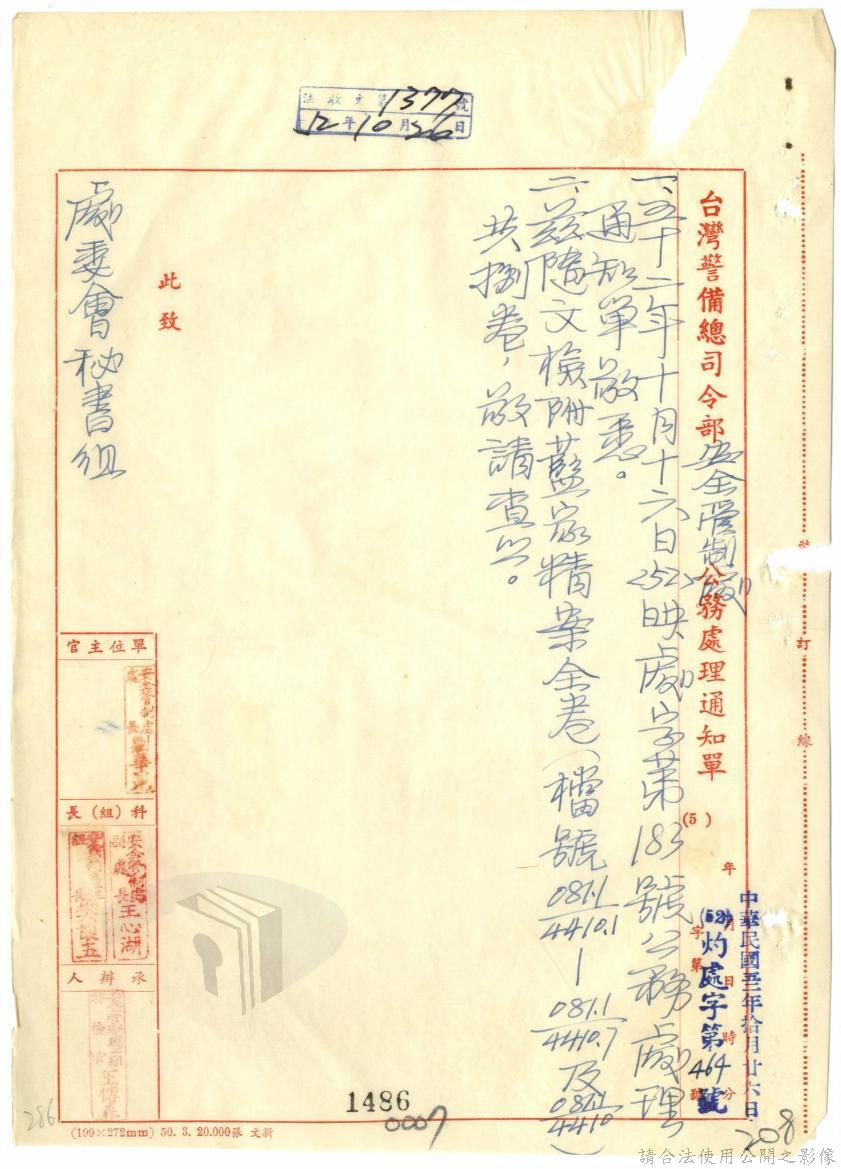 法收文第1377號
52年10月26日
台灣警備總司令部安全管制處公務處理通知單
(5)
年 月 日 時 分
字第 號
中華民國五二年拾月廿六日
(52)灼處字第464號
一、五十二年十月十六日(52)映處字第183號公務處理
通知單敬悉。
二、茲隨文檢附藍家精案全卷(檔號081.1/4410.1—081.1/4410.7及081.1/4410)
共捌卷,敬請查照。
此致
處委會秘書組
單位主官
科(組)長
安全管制處
副處長王心湖
承辦人
裝
訂
線
1486
0007
208
286
(199×272mm) 50. 3. 20.000張 文新
請合法使用公開之影像